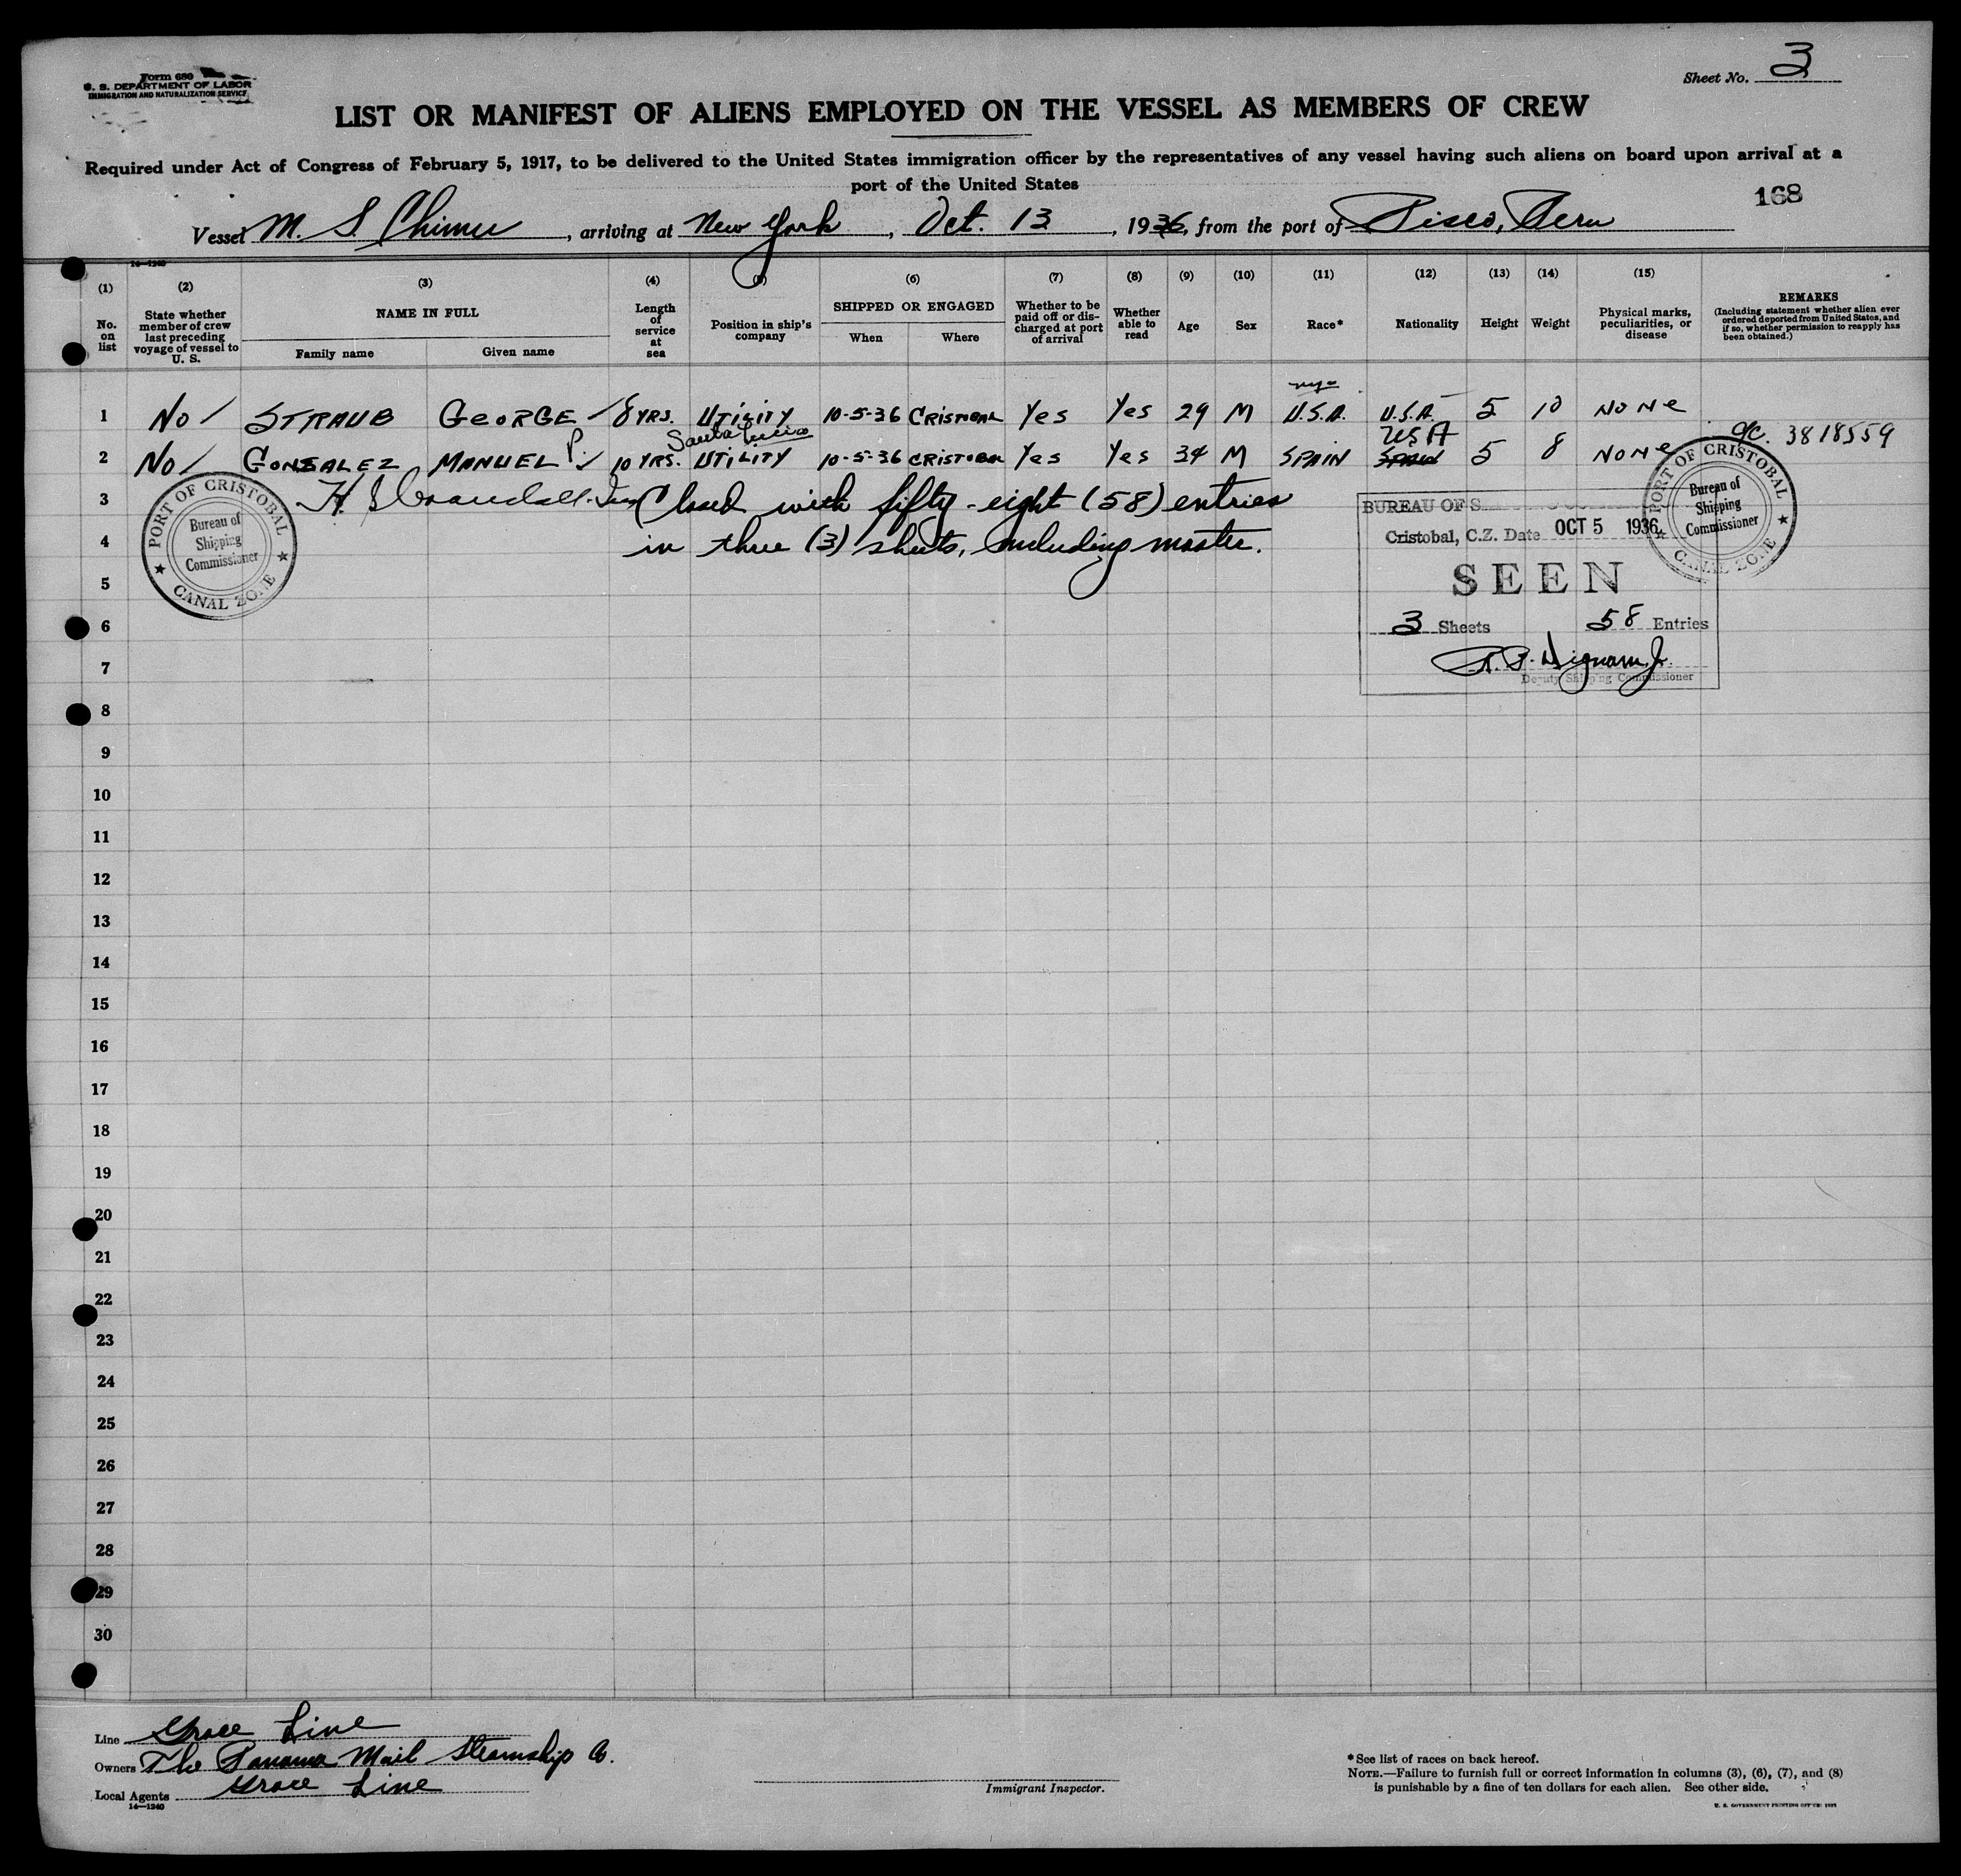 Form 680
U. S. DEPARTMENT OF LABOR
IMMIGRATION AND NATURALIZATION SERVICE
Sheet No. 3
LIST OR MANIFEST OF ALIENS EMPLOYED ON THE VESSEL AS MEMBERS OF CREW
Required under Act of Congress of February 5, 1917, to be delivered to the United States immigration officer by the representatives of any vessel having such aliens on board upon arrival at a
port of the United States
168
Vessel M. S. Chimu, arriving at New York, Oct. 13, 1936, from the port of Pisco, Peru
14—1240
(1) (2) (3) (4) (5) (6) (7) (8) (9) (10) (11) (12) (13) (14) (15)
No. on list
State whether member of crew last preceding voyage of vessel to U. S.
NAME IN FULL
Family name Given name
Length of service at sea
Position in ship's company
SHIPPED OR ENGAGED
When Where
Whether to be paid off or discharged at port of arrival
Whether able to read
Age
Sex
Race*
Nationality
Height
Weight
Physical marks, peculiarities, or disease
REMARKS
(Including statement whether alien ever ordered deported from United States, and if so, whether permission to reapply has been obtained.)
1 No STRAUB GEORGE 8 YRS. UTILITY 10-5-36 CRISTOBAL Yes Yes 29 M U.S.A. U.S.A. 5 10 NONE
Santa Lucia USA
2 No GONSALEZ MANUEL P. 10 YRS. UTILITY 10-5-36 CRISTOBAL Yes Yes 34 M SPAIN SPAIN 5 8 NONE 3818559
3 Closed with fifty-eight (58) entries
4 in three (3) sheets, including master.
PORT OF CRISTOBAL
Bureau of
Shipping
Commissioner
CANAL ZONE
BUREAU OF S
Cristobal, C.Z. Date OCT 5 1936
SEEN
3 Sheets 58 Entries
Deputy Shipping Commissioner
PORT OF CRISTOBAL
Bureau of
Shipping
Commissioner
CANAL ZONE
5
6
7
8
9
10
11
12
13
14
15
16
17
18
19
20
21
22
23
24
25
26
27
28
29
30
Line Grace Line
Owners The Panama Mail Steamship Co.
Local Agents Grace Line
14—1240
Immigrant Inspector.
*See list of races on back hereof.
NOTE.—Failure to furnish full or correct information in columns (3), (6), (7), and (8)
is punishable by a fine of ten dollars for each alien. See other side.